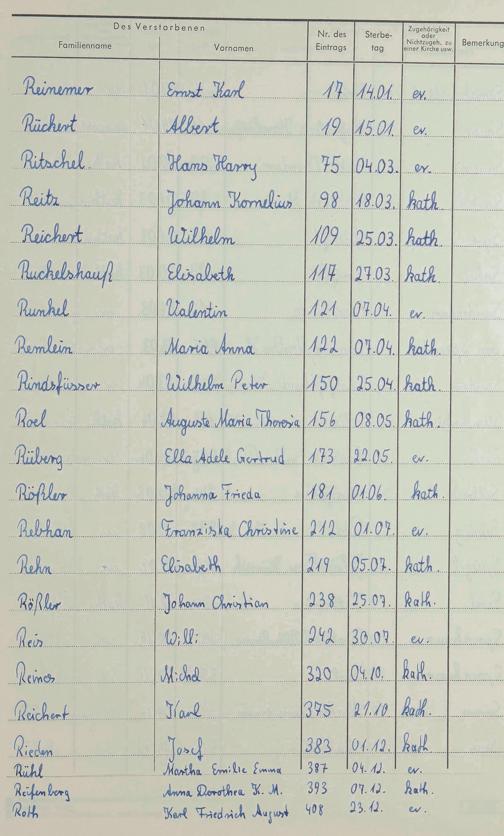 Des Verstorbenen Nr. des Eintrags Sterbe- tag Zugehörigkeit oder Nichtzugeh. zu einer Kirche usw. Bemerkung
Familienname Vornamen
Reinemer Ernst Karl 17 14.01. ev.
Rüchert Albert 19 15.01. ev.
Ritschel Hans Harry 75 04.03. ev.
Reitz Johann Kornelius 98 18.03. kath.
Reichert Wilhelm 109 25.03. kath.
Ruckelshauß Elisabeth 117 27.03. kath.
Runkel Valentin 121 07.04. ev.
Remlein Maria Anna 122 07.04. kath.
Rindsfüsser Wilhelm Peter 150 25.04. kath.
Roel Auguste Maria Theresia 156 08.05. kath.
Rüberg Ella Adele Gertrud 173 22.05. ev.
Rößler Johanna Frieda 181 01.06. kath.
Rebhan Franziska Christine 212 01.07. ev.
Rehn Elisabeth 219 05.07. kath.
Rößler Johann Christian 238 25.07. kath.
Reis Willi 242 30.07. ev.
Michel 320 04.10. kath.
Reichert Karl 375 21.10 kath.
Rieden Josef 383 01.12. kath.
Rühl Martha Emilie Emma 387 04.12. ev.
Reifenberg Anna Dorothea K. M. 393 07.12. kath.
Roth Karl Friedrich August 408 23.12. ev.